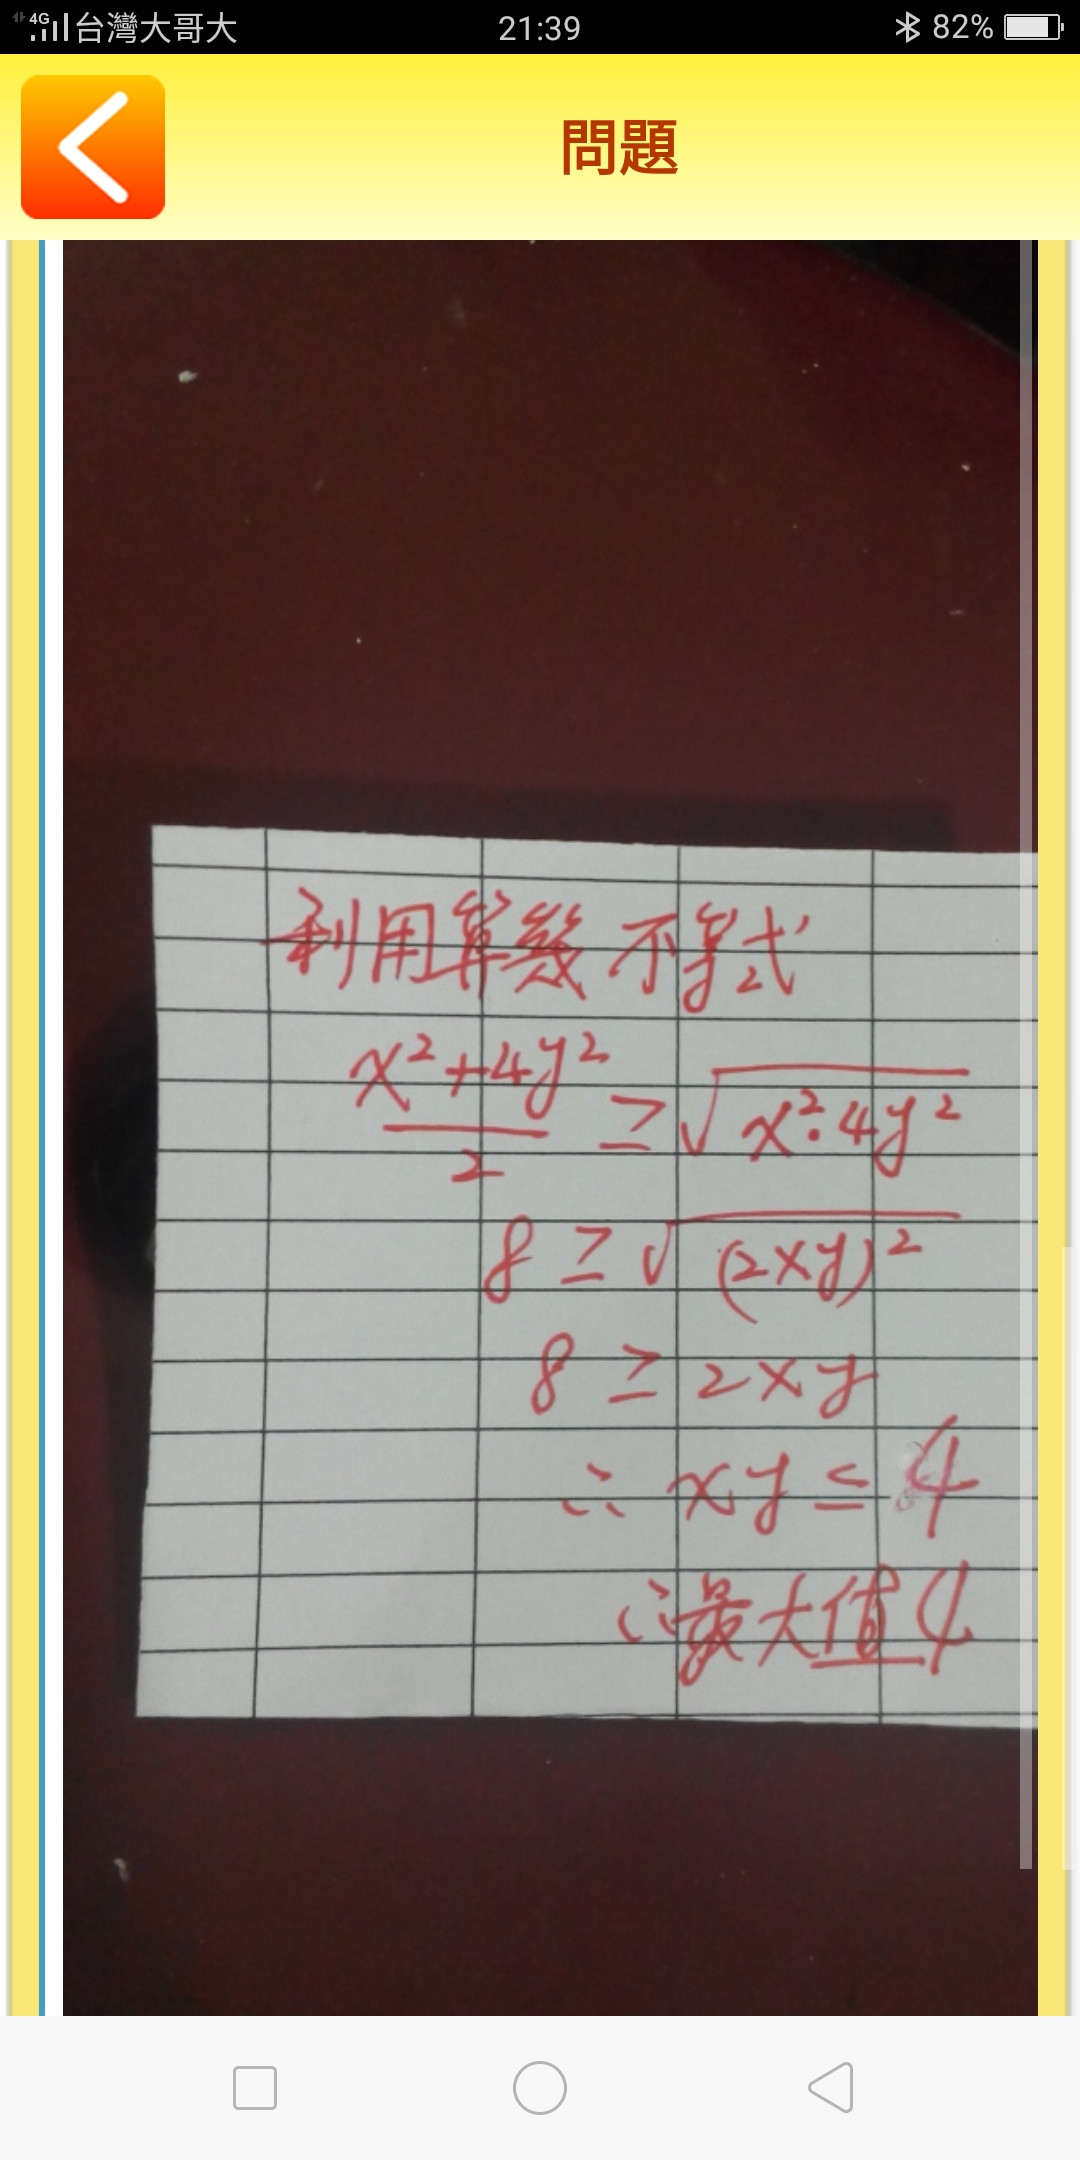 4G 台灣大哥大 21:39 82%
問題
利用算幾不等式
x²+4y²/2 ≥ √x²·4y²
8 ≥ √(2xy)²
8 ≥ 2xy
∴ xy ≤ 4
∴最大值4